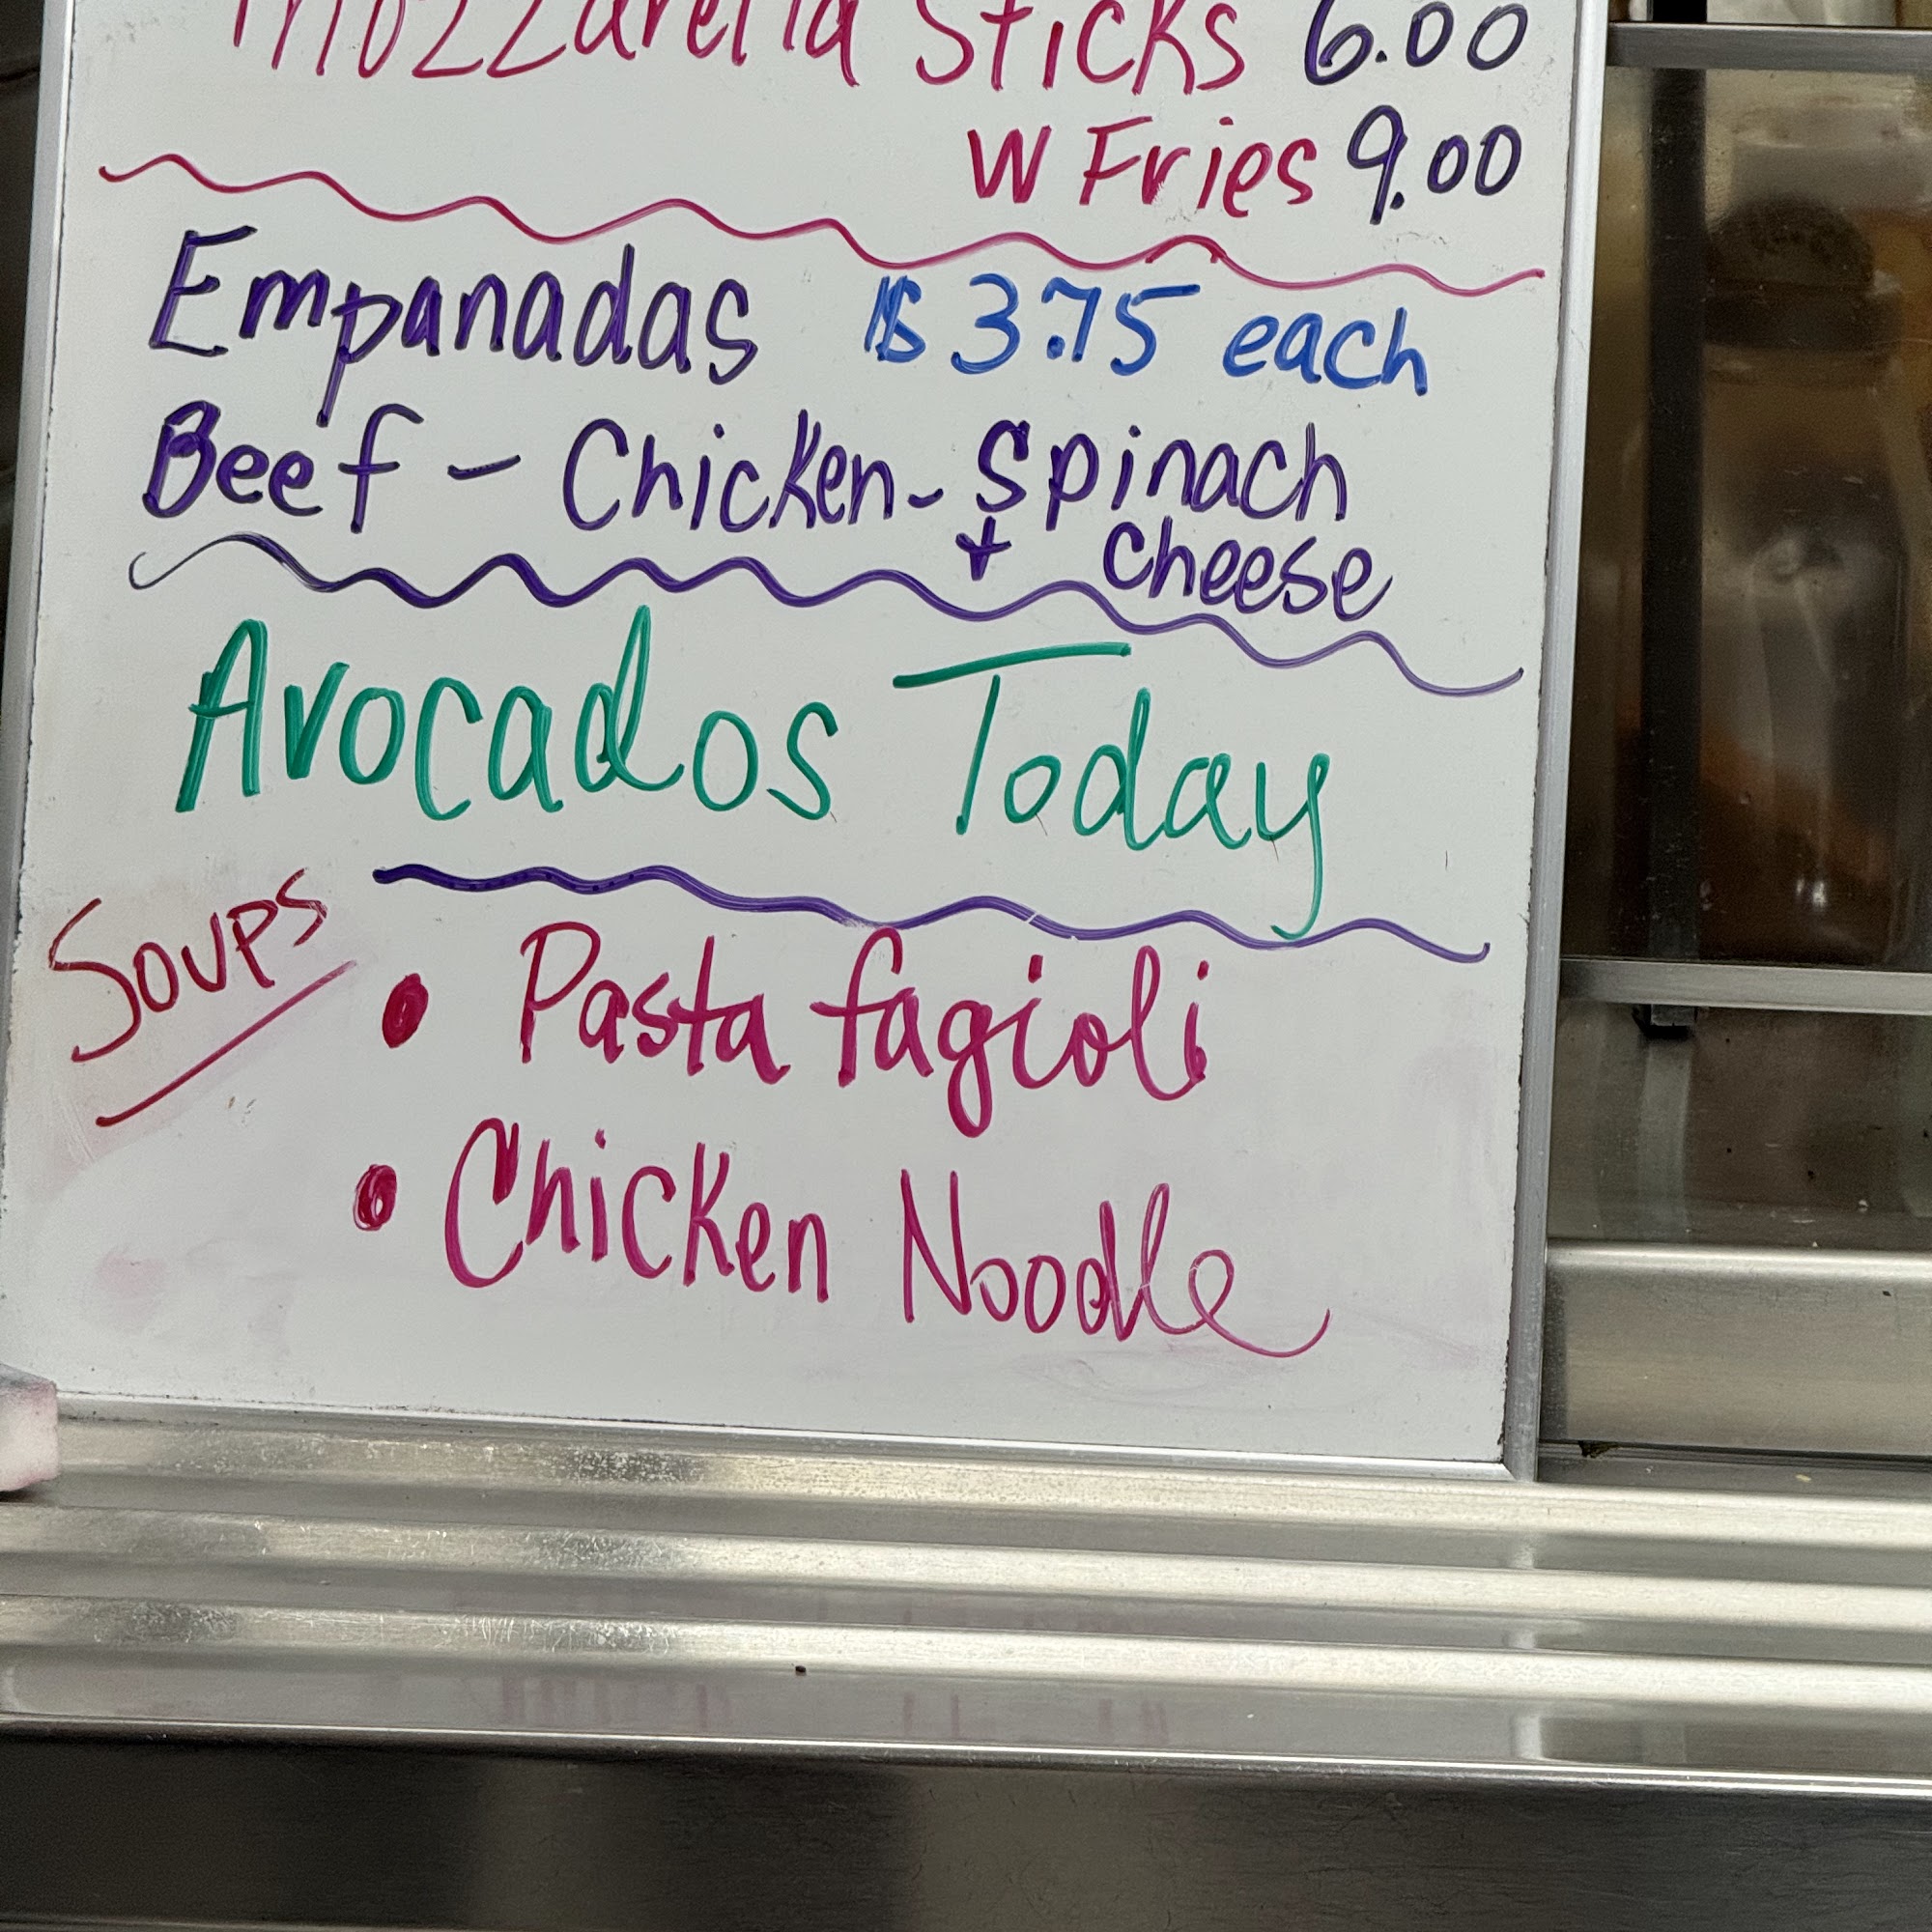 Mozzarella Sticks 6.00
W Fries 9.00
Empanadas $3.75 each
Beef - Chicken - Spinach
+ Cheese
Avocados Today
Soups
• Pasta fagioli
• Chicken Noodle